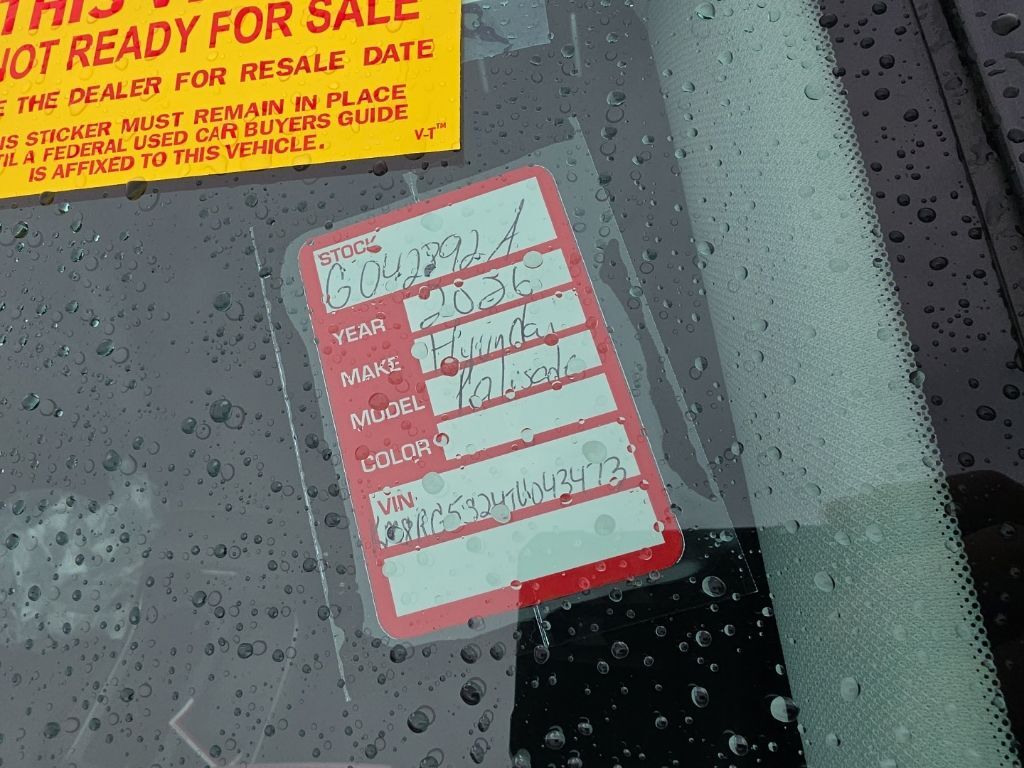 THIS
NOT READY FOR SALE
THE DEALER FOR RESALE DATE
STICKER MUST REMAIN IN PLACE
A FEDERAL USED CAR BUYERS GUIDE
IS AFFIXED TO THIS VEHICLE.
V-T™
STOCK
G042392A
YEAR 2026
MAKE Hyundai
MODEL Palisade
COLOR
VIN